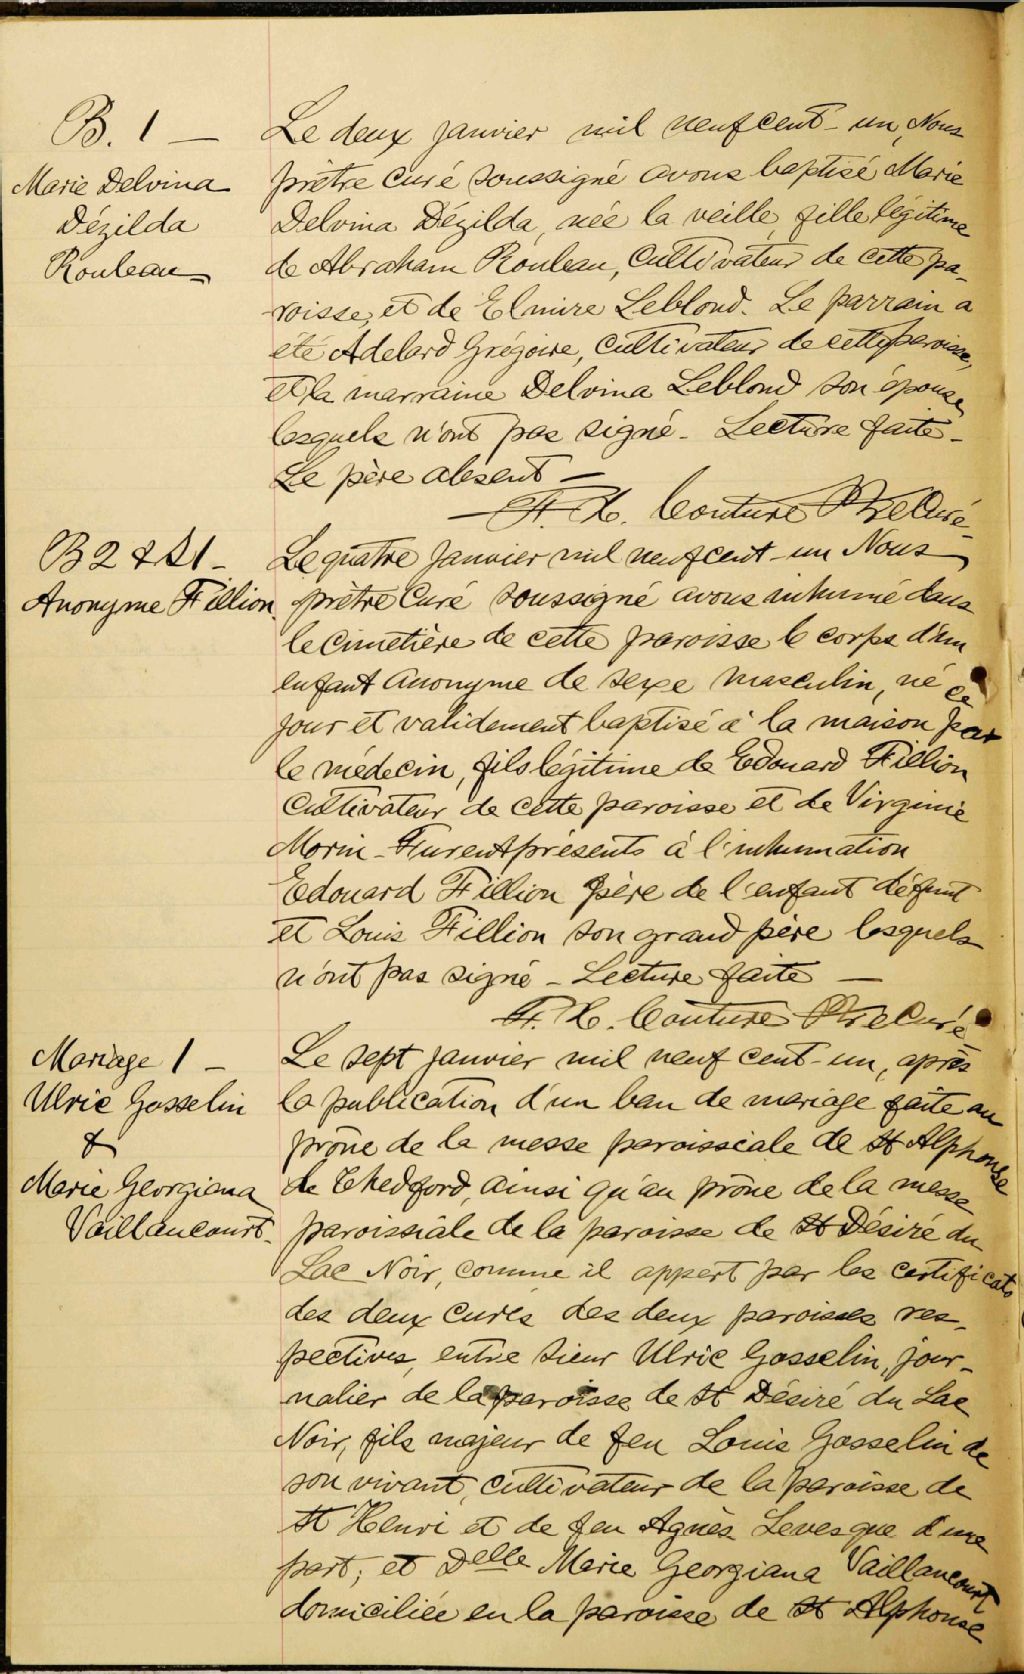 B. 1 —
Marie Delvina
Dézilda
Rouleau
Le deux janvier mil neuf cent-un, Nous
prêtre curé soussigné avons baptisé Marie
Delvina Dézilda, née la veille, fille légitime
de Abraham Rouleau, cultivateur de cette pa-
roisse, et de Elmire Leblond. Le parrain a
été Adelard Grégoire, cultivateur de cette paroisse,
et la marraine Delvina Leblond son épouse,
lesquels n'ont pas signé - Lecture faite -
Le père absent —
F. X. Couture Ptre Curé -
B 2 & S 1 -
Anonyme Fillion
Le quatre janvier mil neuf cent-un Nous
prêtre Curé soussigné avons inhumé dans
le cimetière de cette paroisse le corps d'un
enfant anonyme de sexe masculin, né ce
jour et validement baptisé à la maison par
le médecin, fils légitime de Edouard Fillion
cultivateur de cette paroisse et de Virginie
Morin - Furent présents à l'inhumation
Edouard Fillion père de l'enfant défunt
et Louis Fillion son grand père lesquels
n'ont pas signé - Lecture faite —
F. X. Couture Ptre Curé -
Mariage 1 -
Ulric Gosselin
&
Marie Georgiana
Vaillancourt -
Le sept janvier mil neuf cent-un, après
la publication d'un ban de mariage faite au
prône de la messe paroissiale de St Alphonse
de Thedford, ainsi qu'au prône de la messe
paroissiale de la paroisse de St Désiré du
Lac Noir, comme il appert par les certificats
des deux curés des deux paroisses res-
pectives, entre Sieur Ulric Gosselin, jour-
nalier de la paroisse de St Désiré du Lac
Noir, fils majeur de feu Louis Gosselin de
son vivant, cultivateur de la paroisse de
St Henri et de feu Agnès Levesque d'une
part; et Delle Marie Georgiana Vaillancourt
domiciliée en la paroisse de St Alphonse